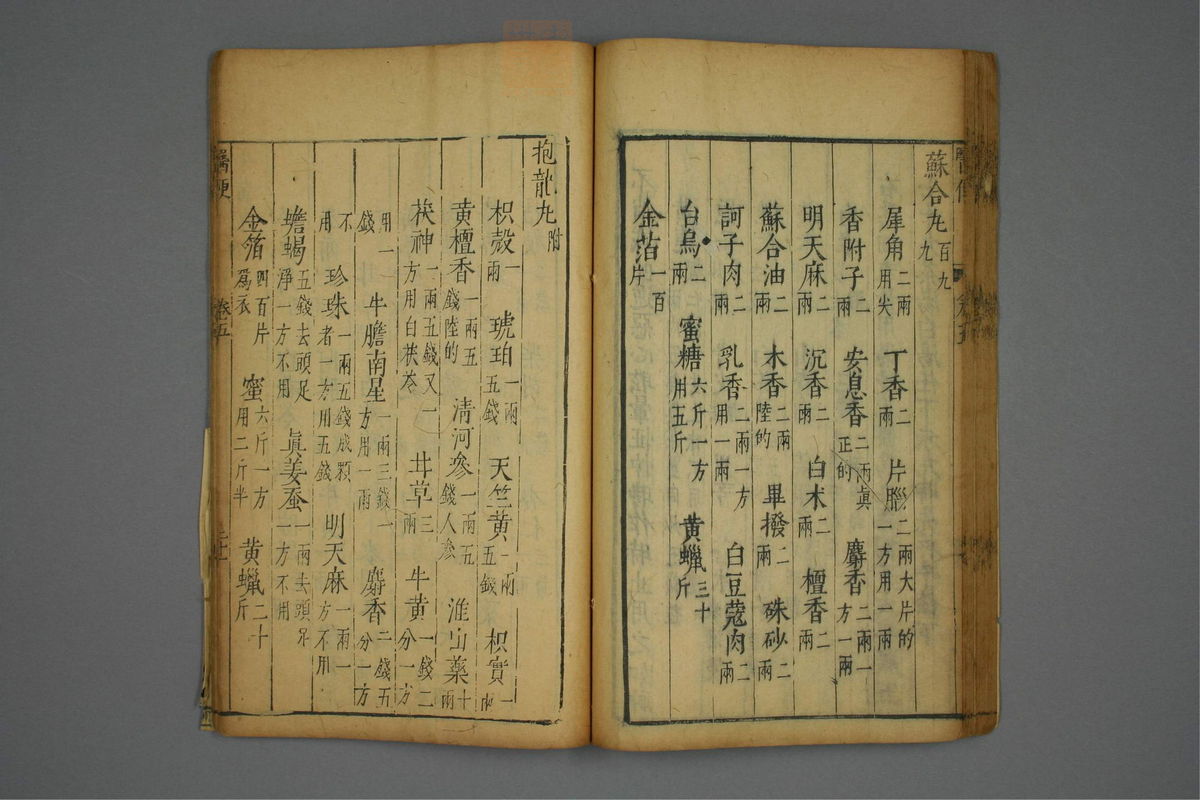 蘇合九百九九
犀角二兩用尖 丁香二兩 片腦二兩大片的一方用一兩
香附子二兩 安息香二兩眞正的 麝香二兩一方一兩
明天麻二兩 沉香二兩 白术二兩 檀香二兩
蘇合油二兩 木香二兩陸的 畢撥二兩 硃砂二兩
訶子肉二兩 乳香二兩一方用一兩 白豆蔻肉二兩
台烏二兩 蜜糖六斤一方用五斤 黄蠟三十斤
金箔一百片
抱龍九附
枳殼一兩 琥珀一兩五錢 天竺黄一兩五錢 枳實一兩
黄檀香一兩五錢陸的 清河參一兩五錢人參 淮山藥十兩
茯神一兩五錢又一方用白茯苓 甘草三兩 牛黄一錢二分一方
用一錢 牛膽南星一兩三錢一方用一兩 麝香二錢五分一方
不用 珍珠一兩五錢成顆者一方用五錢 明天麻一兩一方不用
蟾蝎五錢去頭足淨一方不用 眞姜蚕一兩去頭足一方不用
金箔四百片爲衣 蜜六斤一方用二斤半 黄蠟二十斤
醫便
卷五